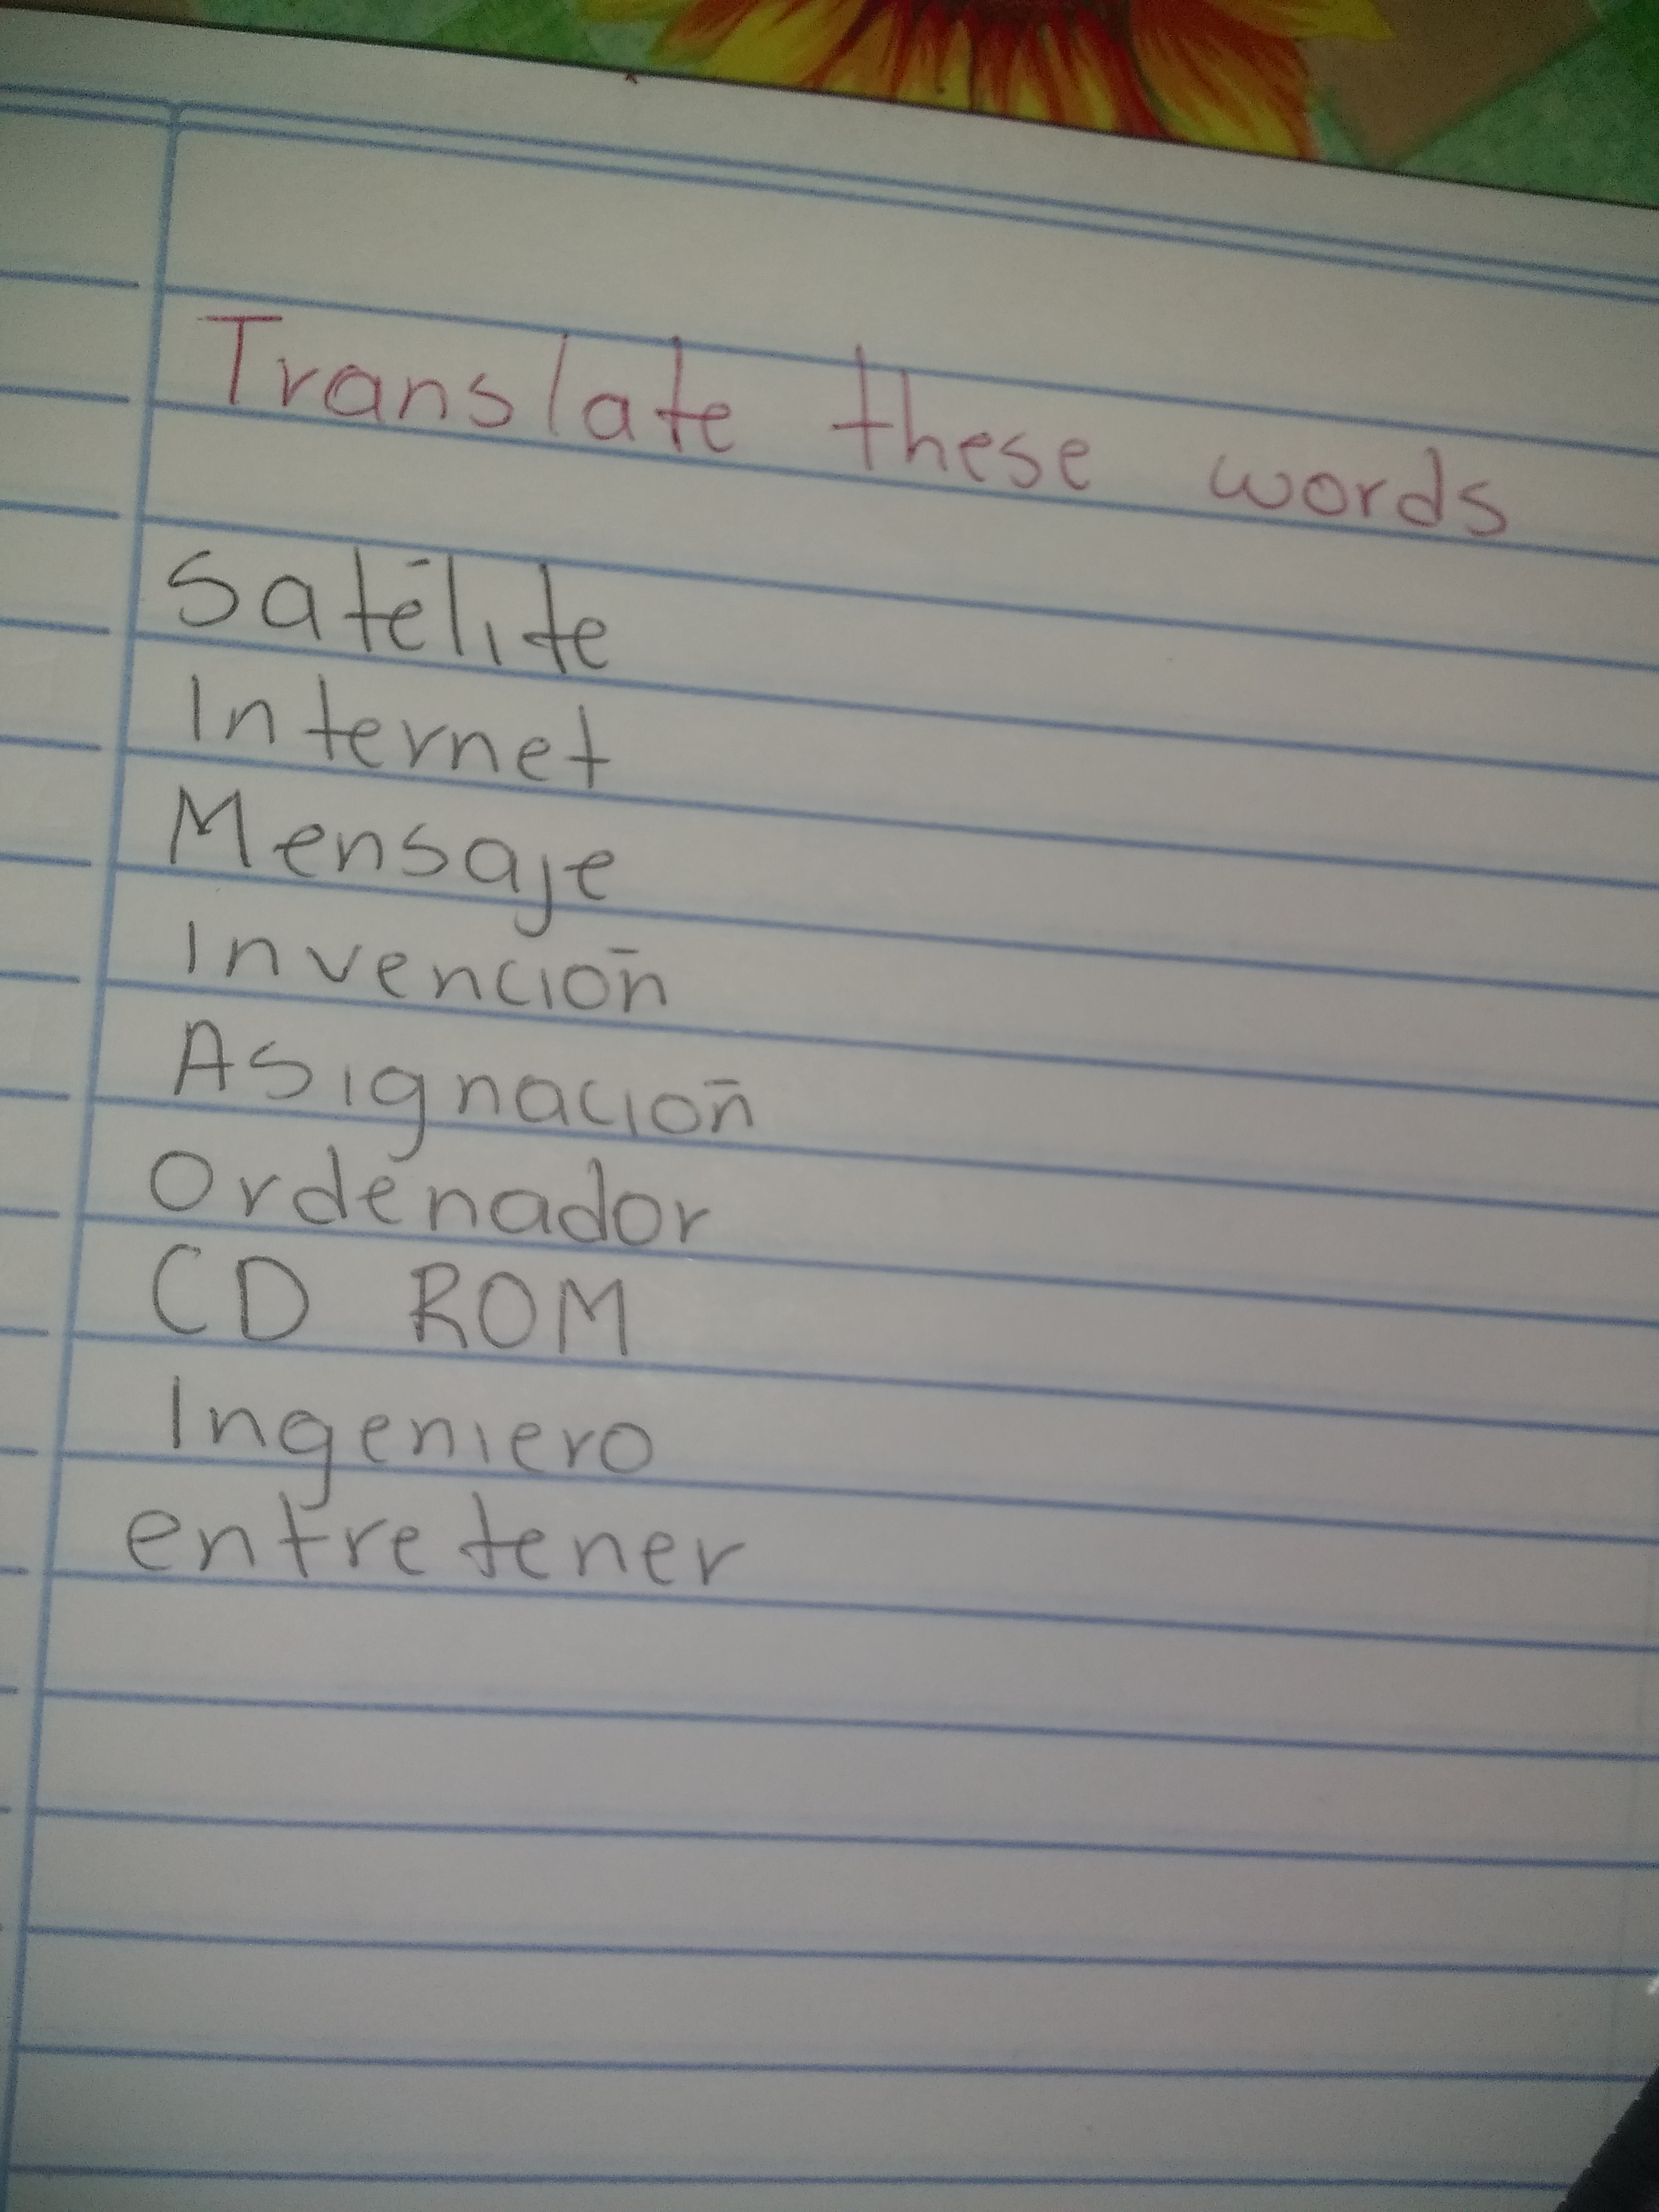 Translate these words
Satélite
Internet
Mensaje
Invención
Asignación
Ordenador
CD ROM
Ingeniero
entretener